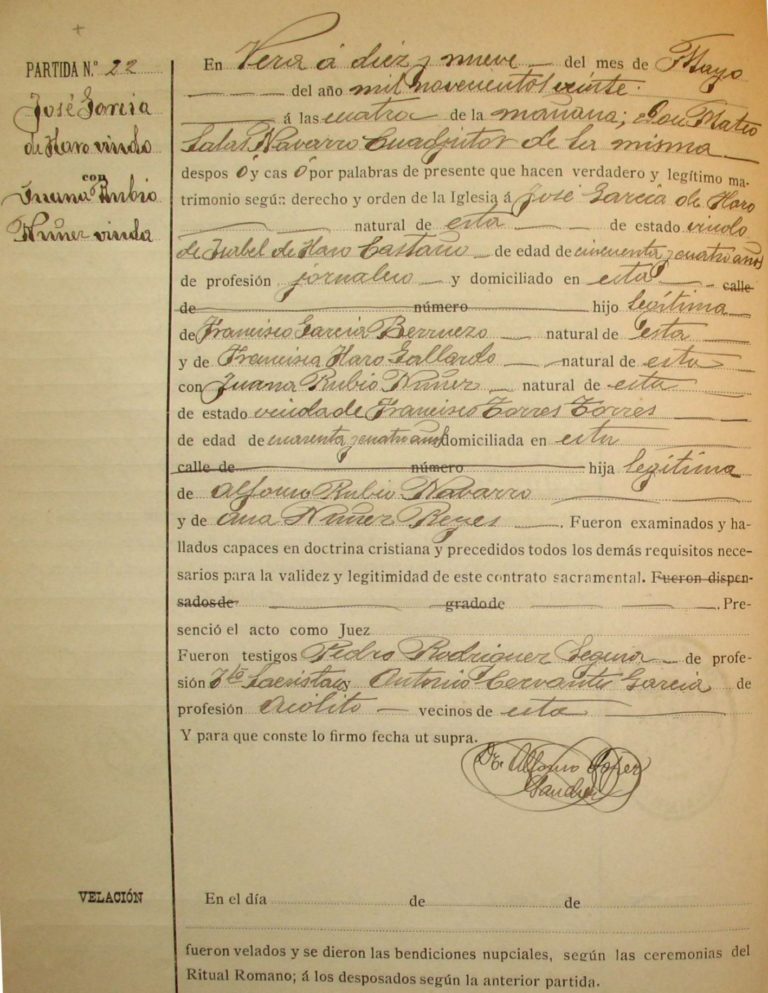 PARTIDA N.º 22
José García
de Haro viudo
con
Juana Rubio
Núñez viuda
En Vera á diez y nueve del mes de Mayo
del año mil novecientos veinte.
á las cuatro de la mañana; Don Mateo
Salas Navarro Cuadjutor de la misma
despos ó y cas ó por palabras de presente que hacen verdadero y legítimo ma-
trimonio según derecho y orden de la Iglesia á José García de Haro
natural de esta de estado viudo
de Isabel de Haro Castaño de edad de cincuenta y cuatro años
de profesión jornalero y domiciliado en esta calle
de número hijo legítimo
de Francisco García Berruezo natural de esta
y de Francisca Haro Gallardo natural de esta
con Juana Rubio Núñez natural de esta
de estado viuda de Francisco Torres Torres
de edad de cuarenta y cuatro años domiciliada en esta
calle de número hija legítima
de Alfonso Rubio Navarro
y de Ana Núñez Reyes . Fueron examinados y ha-
llados capaces en doctrina cristiana y precedidos todos los demás requisitos nece-
sarios para la validez y legitimidad de este contrato sacramental. Fueron dispen-
sados de grado de . Pre-
senció el acto como Juez
Fueron testigos Pedro Rodríguez Segura de profe-
sión Sacristán y Antonio Cervantes García de
profesión Acólito vecinos de esta
Y para que conste lo firmo fecha ut supra.
Dr. Alfonso López
Sánchez
VELACIÓN
En el día de de
fueron velados y se dieron las bendiciones nupciales, según las ceremonias del
Ritual Romano; á los desposados según la anterior partida.